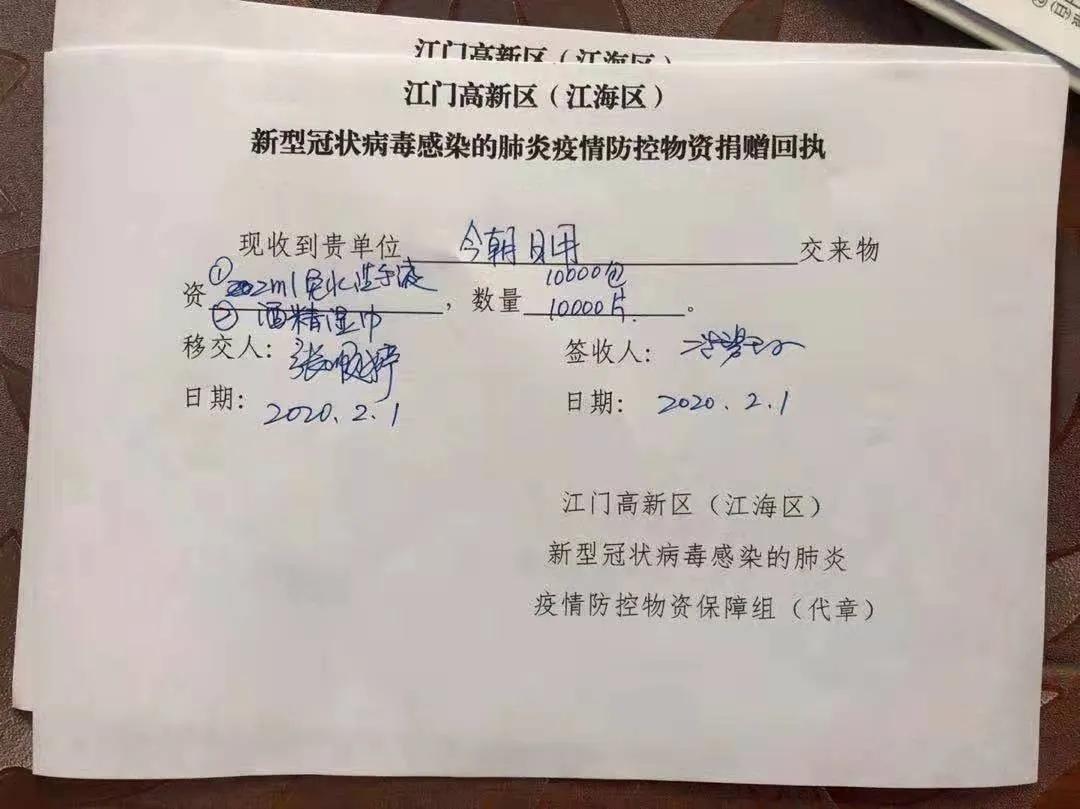 江门高新区（江海区）
江门高新区（江海区）
新型冠状病毒感染的肺炎疫情防控物资捐赠回执
现收到贵单位 今朝日用 交来物
资 ①2ml免水洗手液 ，数量 10000包 。
②酒精湿巾 10000片.
移交人： 签收人：
日期：2020.2.1 日期：2020.2.1
江门高新区（江海区）
新型冠状病毒感染的肺炎
疫情防控物资保障组（代章）